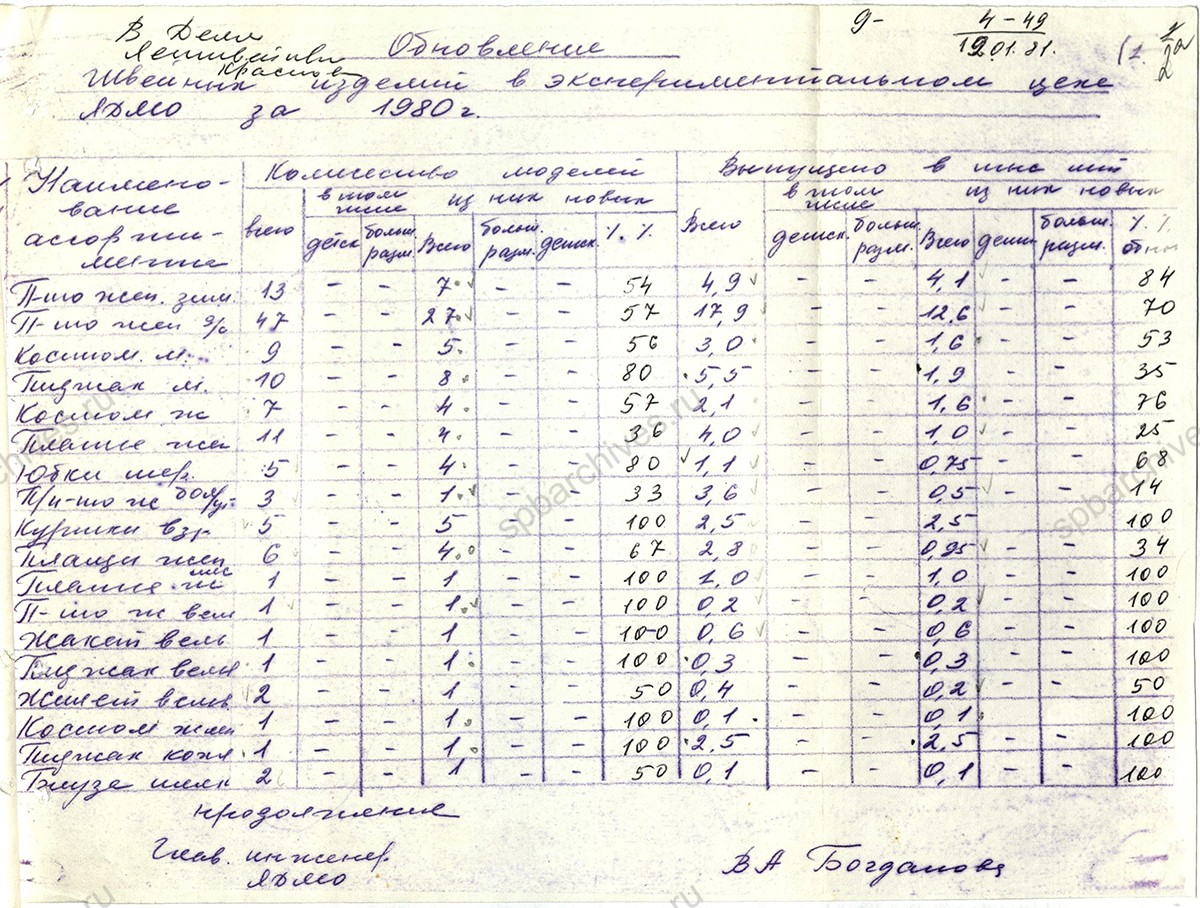 В Дело
9-
4-49
19.01.81.
Обновление
швейных изделий в экспериментальном цехе
ЛДМО за 1980 г.
Наимено-
вание
ассорти-
мента
Количество моделей
Выпущено в тыс шт
всего
в том числе
из них новых
Всего
в том числе
из них новых
детск больш. разм. Всего больш. разм. детск. %.% детск. больш. разм. Всего детск больш. разм. %.% обн
П-то жен. зим 13 - - 7 - - 54 4,9 - - 4,1 - - 84
П-то жен д/с 47 - - 27 - - 57 17,9 - - 12,6 - - 70
Костюм. м. 9 - - 5 - - 56 3,0 - - 1,6 - - 53
Пиджак м. 10 - - 8 - - 80 5,5 - - 1,9 - - 35
Костюм ж 7 - - 4 - - 57 2,1 - - 1,6 - - 76
Платье жен 11 - - 4 - - 36 4,0 - - 1,0 - - 25
Юбки шер. 5 - - 4 - - 80 1,1 - - 0,75 - - 68
П/п-то ж 3 - - 1 - - 33 3,6 - - 0,5 - - 14
Куртки взр. 5 - - 5 - - 100 2,5 - - 2,5 - - 100
Плащи жен 6 - - 4 - - 67 2,8 - - 0,95 - - 34
Платье ж 1 - - 1 - - 100 1,0 - - 1,0 - - 100
П-то ж вел 1 - - 1 - - 100 0,2 - - 0,2 - - 100
Жакет вель 1 - - 1 - - 100 0,6 - - 0,6 - - 100
Пиджак вель 1 - - 1 - - 100 0,3 - - 0,3 - - 100
Жилет вель 2 - - 1 - - 50 0,4 - - 0,2 - - 50
Костюм жен 1 - - 1 - - 100 0,1 - - 0,1 - - 100
Пиджак кож 1 - - 1 - - 100 2,5 - - 2,5 - - 100
Блуза шелк 2 - - 1 - - 50 0,1 - - 0,1 - - 100
продолжение
Глав. инженер
ЛДМО
В А Богданова
spbarchives.ru
spbarchives.ru